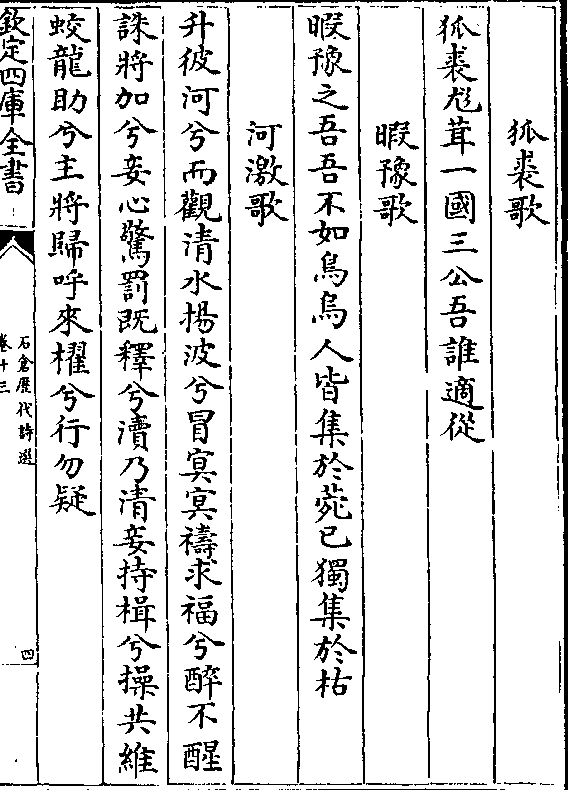 狐裘歌
狐裘尨茸一國三公吾誰適從
暇豫歌
暇豫之吾吾不如鳥烏人皆集於菀己獨集於枯
河激歌
升彼河兮而觀清水揚波兮冒冥冥禱求福兮醉不醒
誅將加兮妾心驚罰既釋兮瀆乃清妾持楫兮操其維
蛟龍助兮主將歸呼來櫂兮行勿疑
欽定四庫全書
石倉歷代詩選
卷十三
四